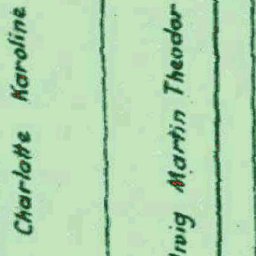 Charlotte Karoline
Martin Theodor